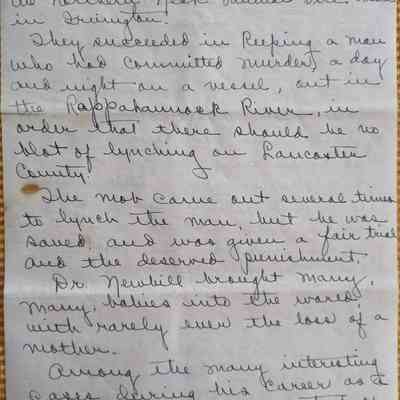 in Irvington.
They succeeded in keeping a man
who had committed murder, a day
and night on a vessel, out in
the Rappahannock River, in
order that there should be no
blot of lynching on Lancaster
County.
The mob came out several times
to lynch the man, but he was
saved, and was given a fair trial
and the deserved punishment.
Dr. Newbill brought many,
many, babies into the world,
with rarely ever the loss of a
mother.
Among the many interesting
cases during his career as a